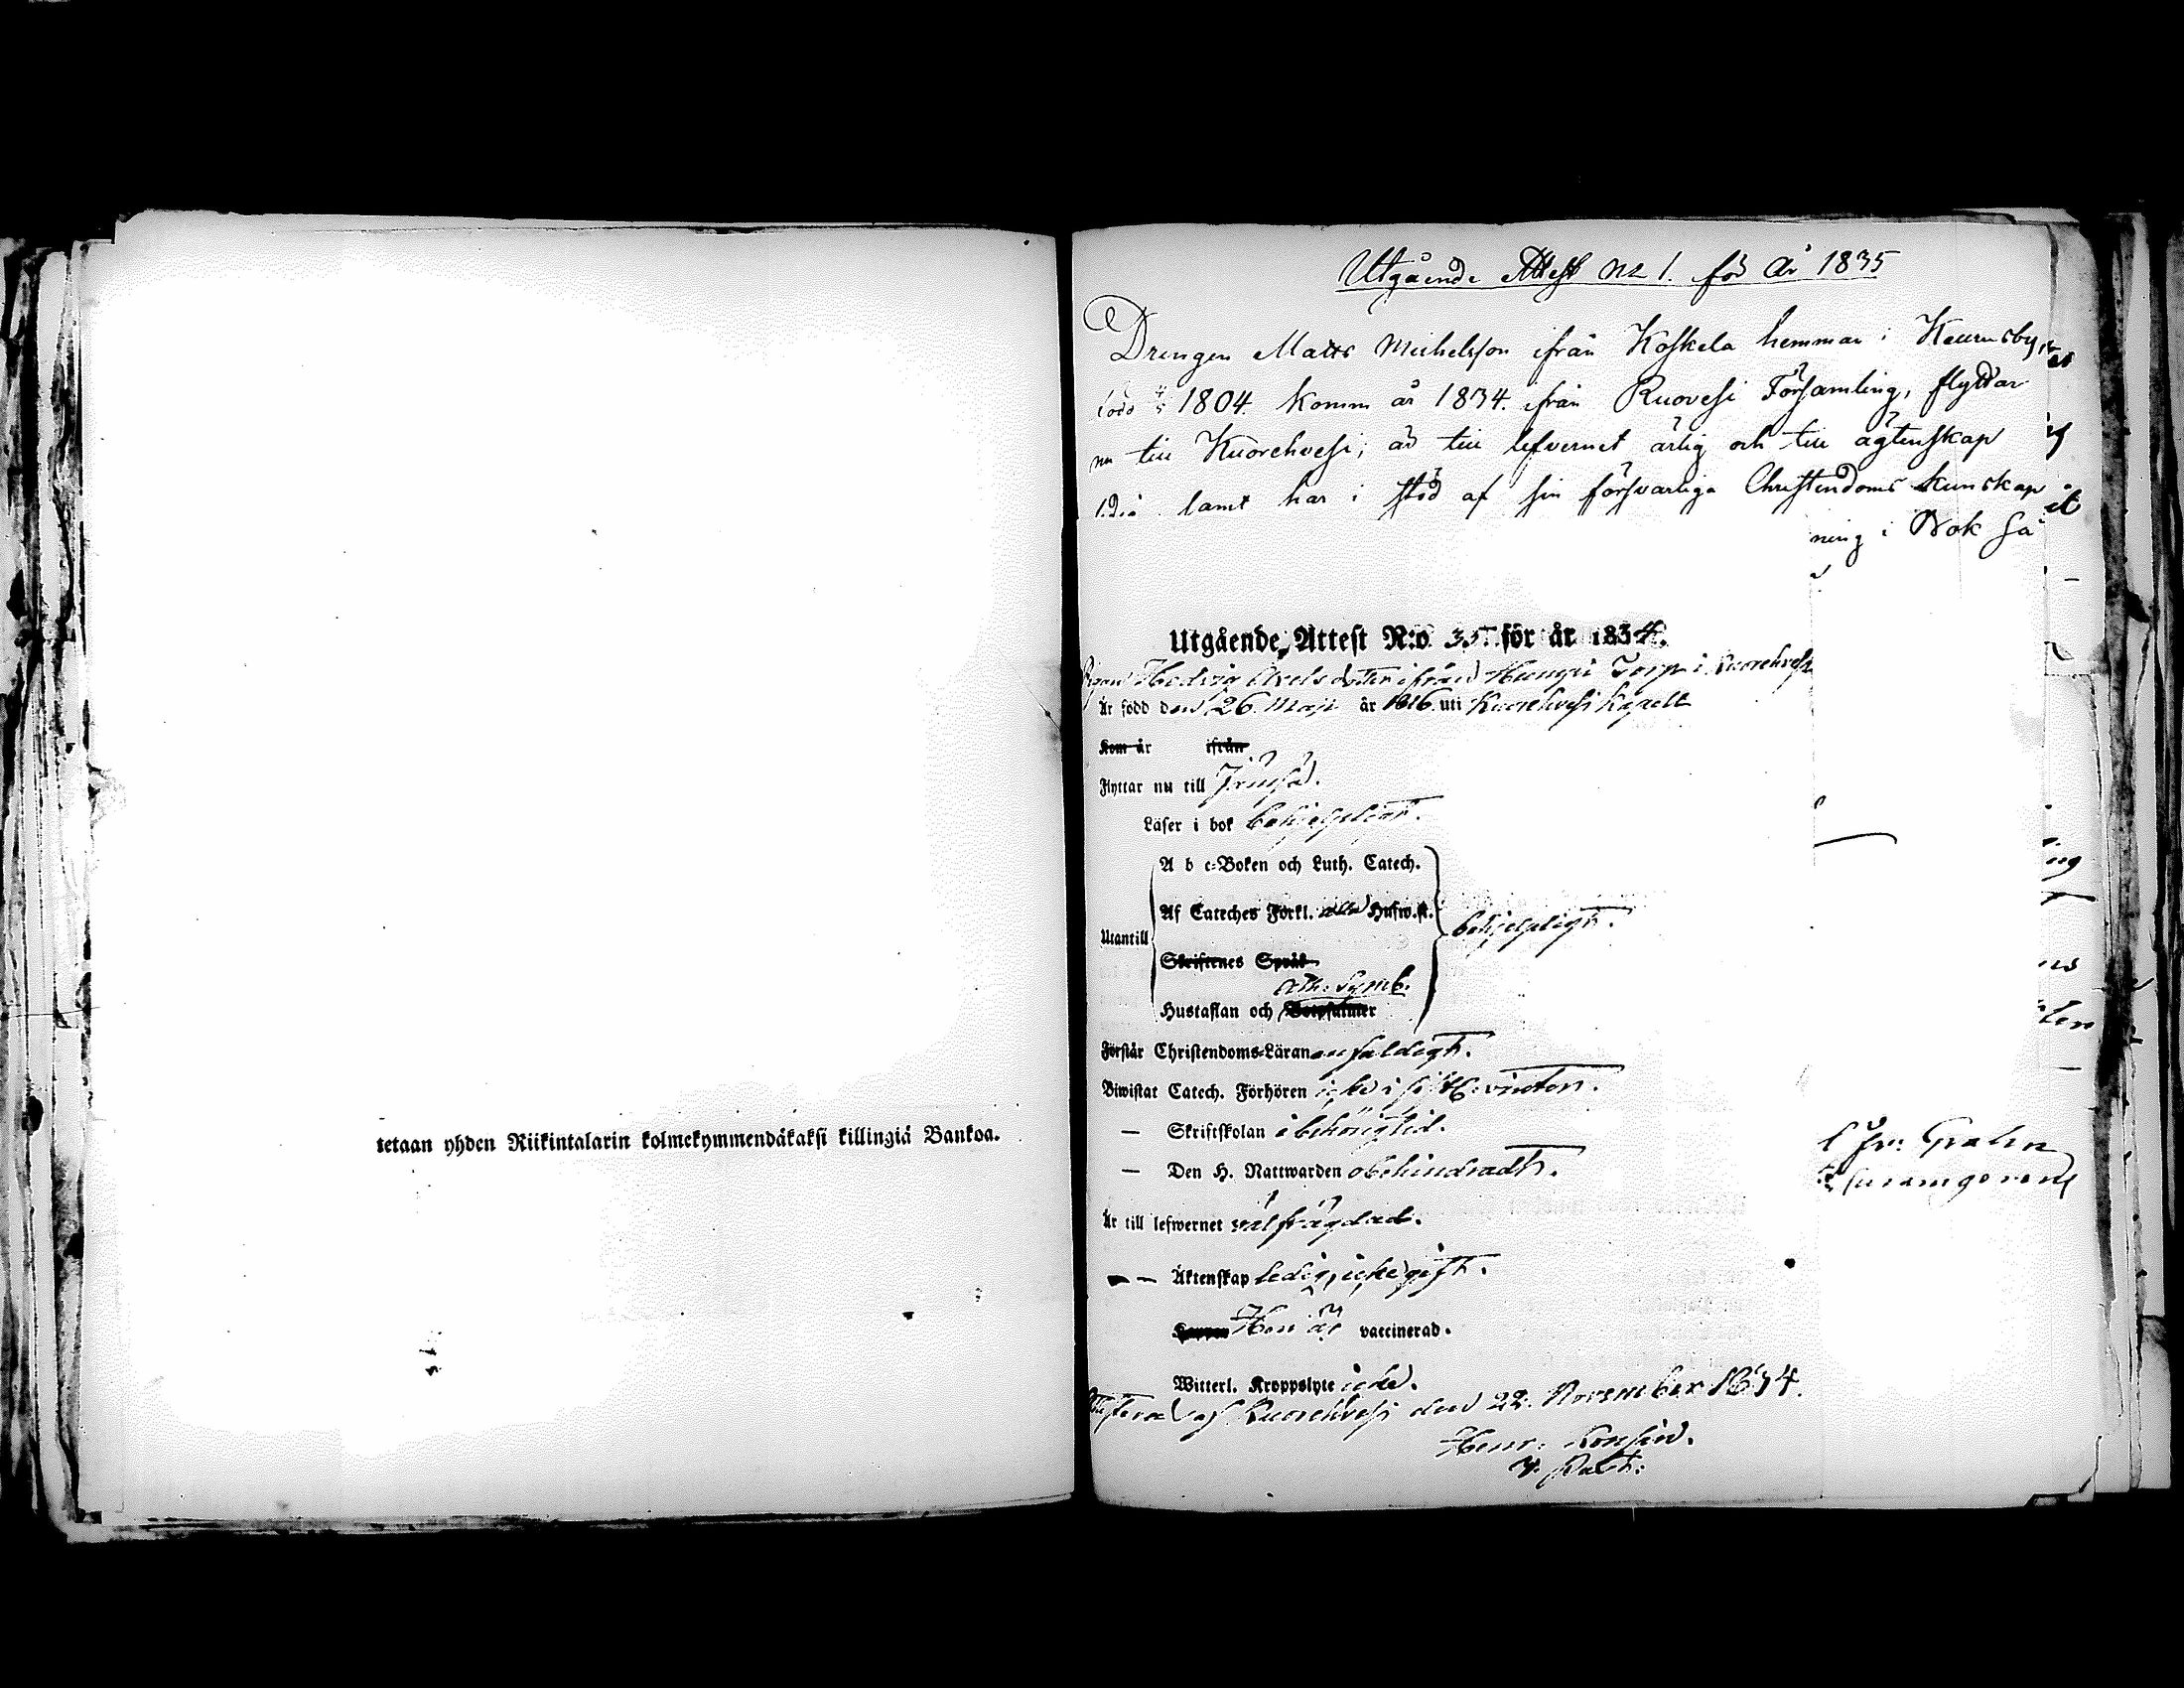 tetaan yhden Riikintalarin kolmekymmendäkaksi killingiä Bankoa.
Utgående Attest No 1. för år 1835
Drengen Matts Michelsson ifrån Koskela hemman i
född 1804. Komm år 1834. ifrån Ruovesi Församling, flyttar
nu till Kuorehvesi; är till lefvernet ärlig och till ägtenskap
samt har i stöd af sin försvarliga Christendoms kunskap
ning i Bok så
Utgående Attest N:o 35 för år 1834.
Pigan Hedvig Axelsdotter ifrån Torp i Kuorehvesi
Är född den 26 Maji år 1816 uti Kuorehvesi Kapell
Kom år ifrån
Flyttar nu till Jemsä.
Läser i bok behjelpligt.
A b c-Boken och Luth. Catech.
Af Cateches Förkl. Husw.st.
behjelpligt.
Utantill
Skriftenes Språk
Ath. Symb.
Hustaflan och Botpsalmer
Förstår Christendoms-Läran enfaldigt.
Biwistat Catech. Förhören icke i vinter.
— Skriftskolan i behörig tid.
— Den H. Nattwarden obehindradt.
Är till lefwernet välfrägdad.
— Äktenskap ledig, icke gift.
Koppor Hon är vaccinerad.
Witterl. Kroppslyte icke.
af Kuorehvesi den 22. November 1834.
Henr. Konsin.
V. Past:
Grahn